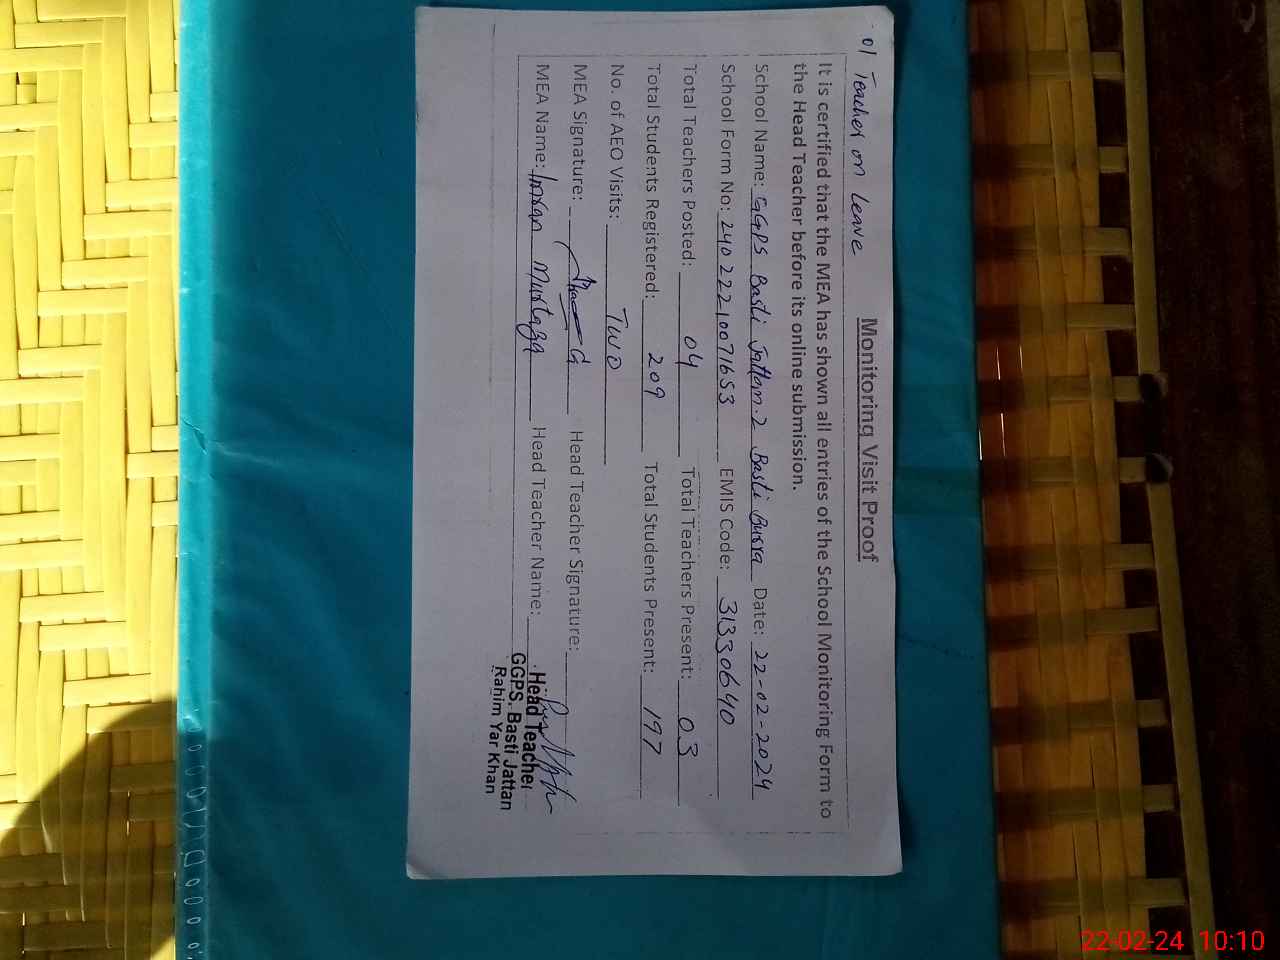 01 Teacher on Leave
Monitoring Visit Proof
It is certified that the MEA has shown all entries of the School Monitoring Form to
the Head Teacher before its online submission.
School Name: GGPS Basti Jattan.2 Basti Burra Date: 22-02-2024
School Form No: 24022210071653 EMIS Code: 31330640
Total Teachers Posted: 04 Total Teachers Present: 03
Total Students Registered: 209 Total Students Present: 197
No. of AEO Visits: TWO
MEA Signature: Head Teacher Signature:
MEA Name: Imran Murtaza Head Teacher Name:
Head Teacher
GGPS. Basti Jattan
Rahim Yar Khan
22-02-24 10:10